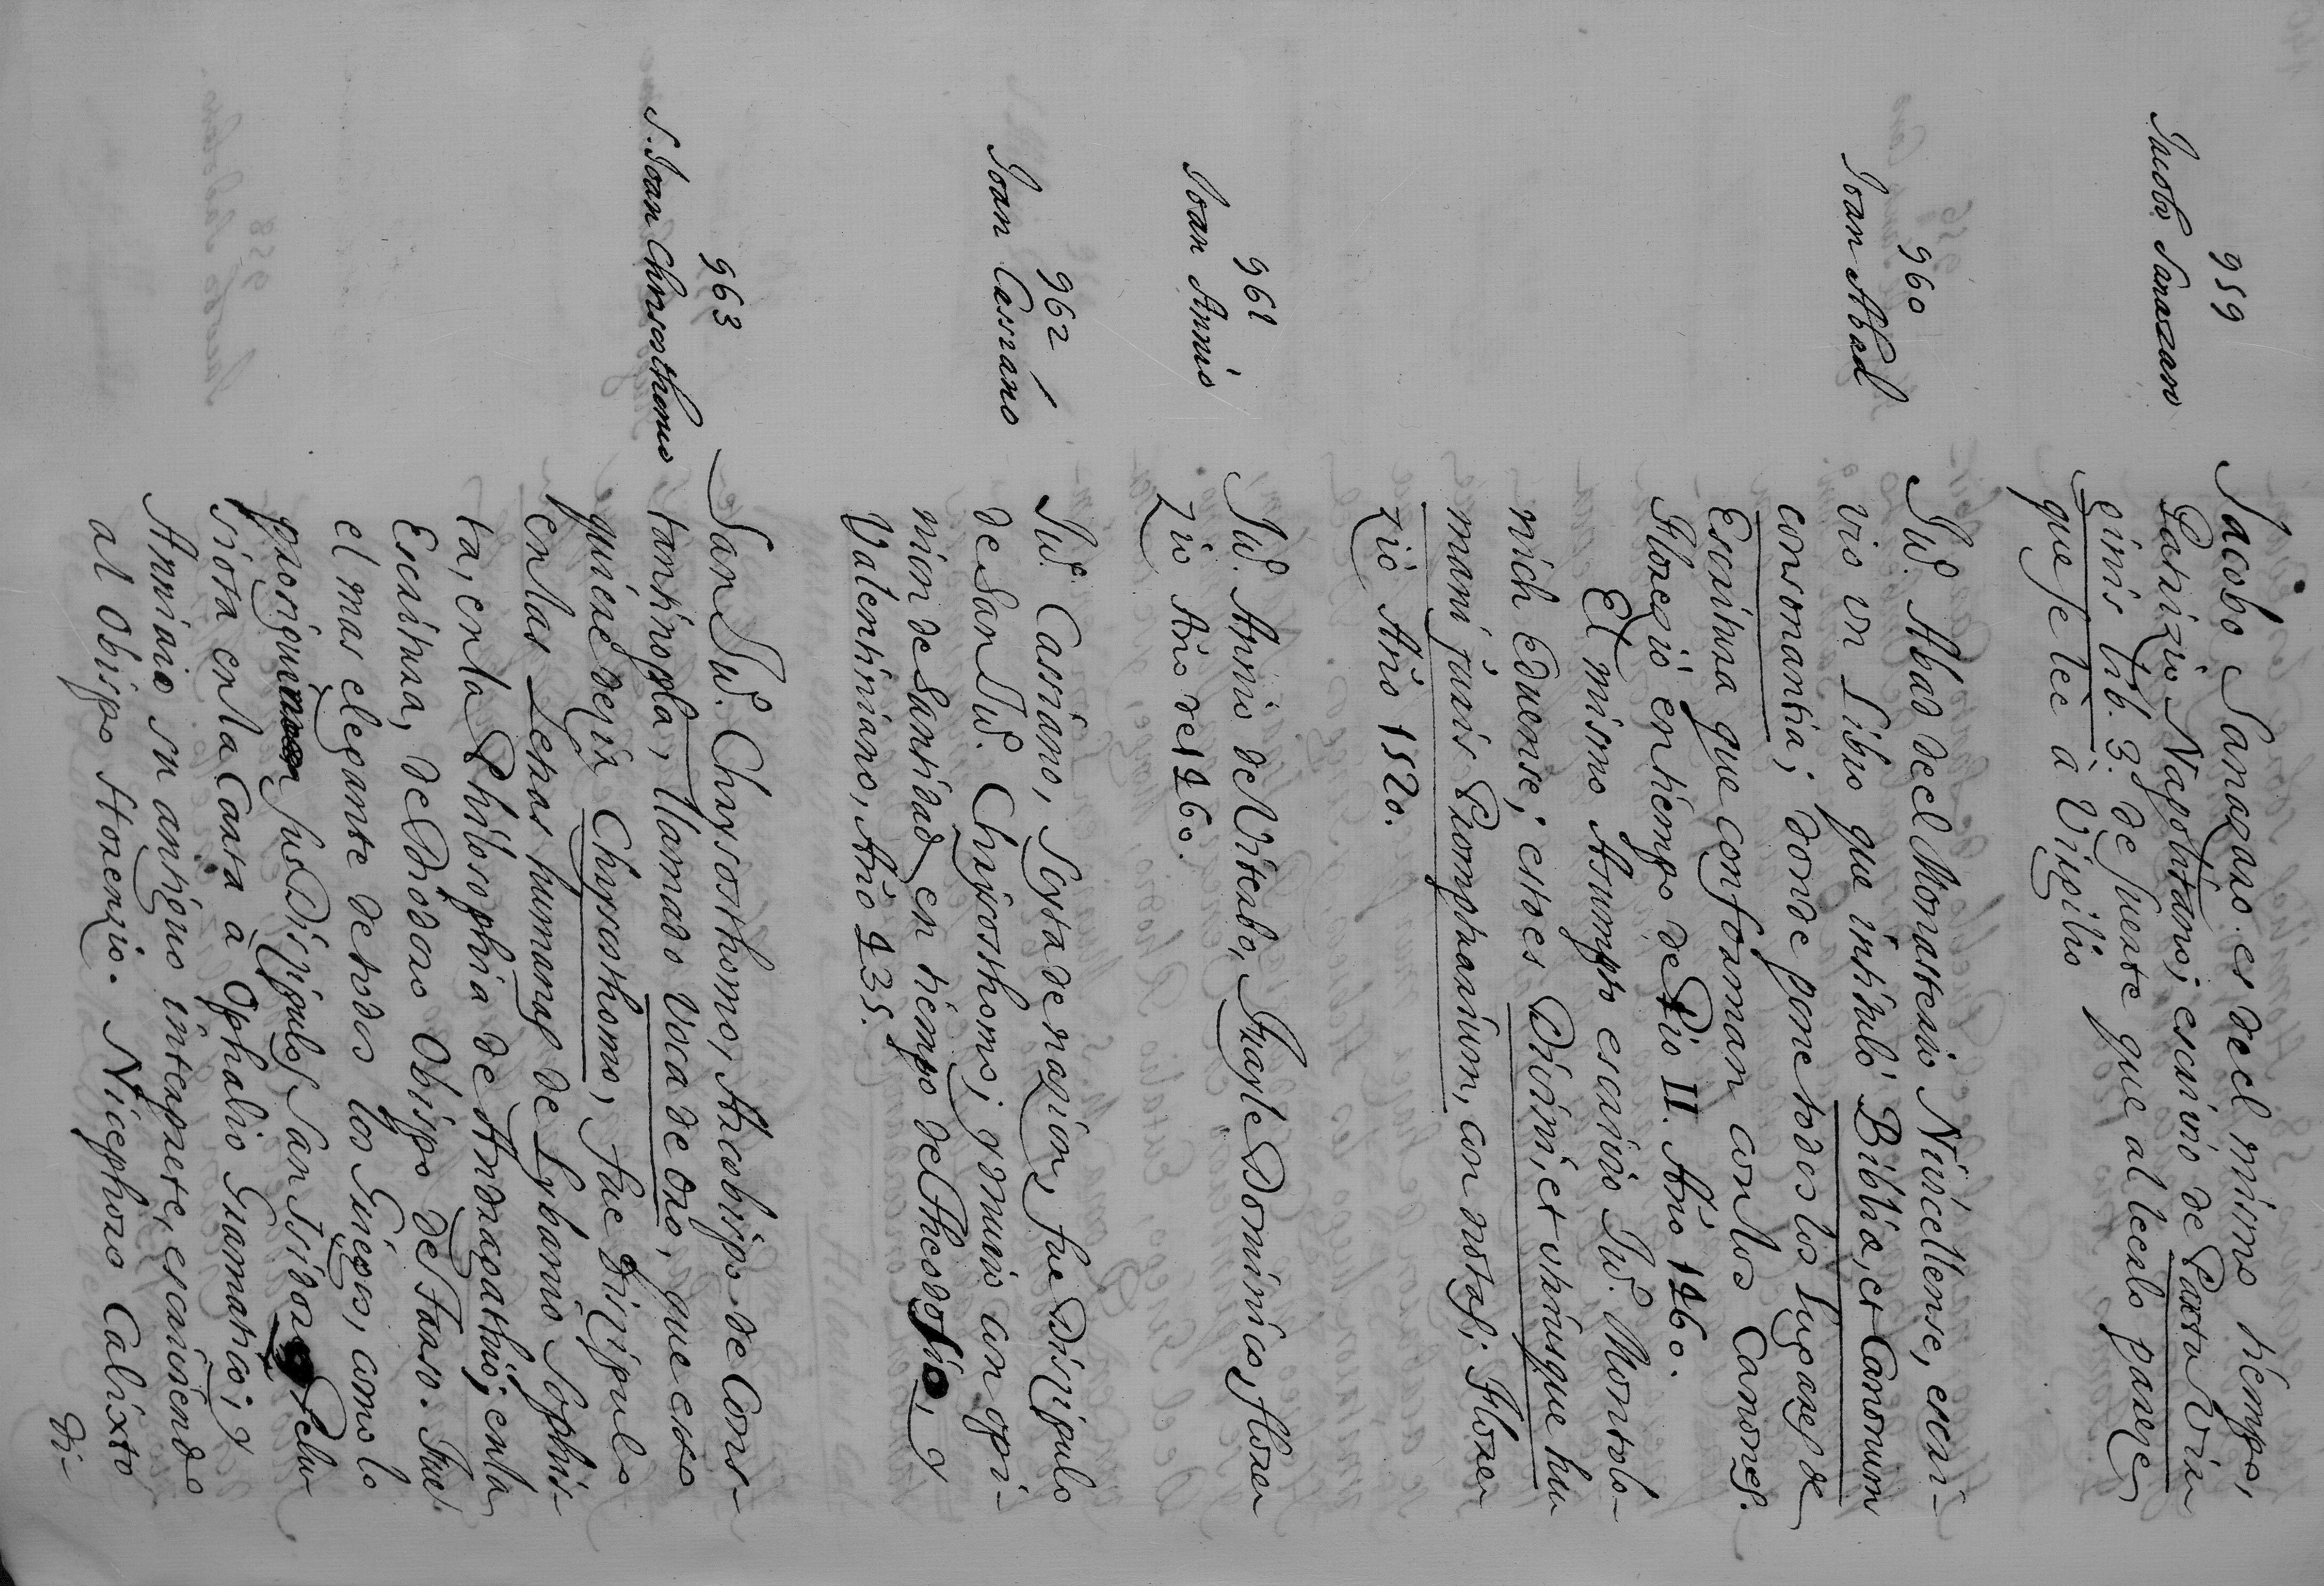 959
Jacobo Sanazaro
Jacobo Sanazaro es de el mismo tiempo,
Patrizio Napolitano; escrivio de Partu Vir
ginis lib. 3. de suerte que al leerlo pareze
que se lee à Virgilio
960
Joan Abad
Ju.º Abad de el Monasterio Nivicellense, escri-
vio un Libro que intituló Biblia, et Canonum
consonantia; donde pone todos los Lugares de
Escritura que conforman con los Canones.
Florezió en tiempo de Pio II. Año 1460.
El mismo Assumpto escrivió Ju.º Montolo-
nich Eduense; esto es Divini, et utriusque hu
mani juris Promptuarium, con notas. Flore
zió Año 1520.
961
Joan Annio
Ju.º Annio de Viterbo, Frayle Dominico, flore
zio Año de 1460.
962
Joan Cassiano
Ju.º Cassiano, Scyta de nazion, fue Dizipulo
de San Ju.º Chrysosthomo; y murio con opi-
nion de Santidad en tiempo de Theodosio, y
Valentiniano, Año 435.
963
S. Joan Chrisosthomo
San Ju.º Chrysosthomo, Arzobispo de Cons-
tantinopla, llamado voca de Oro, que esso
quiere dezir Chrysosthomo, fue Dizipulo
en las Letras humanas de Lybanio Sophis-
ta, en la Philosophia de Andragathio; en la
Escritura, de Diodoro Obispo de Tarso. Fue
el mas elegante de todos los Griegos, como lo
San Isidoro Pelu
siota en la Carta à Ophalio Gramatico; y
Anniano su antiguo interprete, escriviendo
al Obispo Horonzio. Nicephoro Calixto
di-